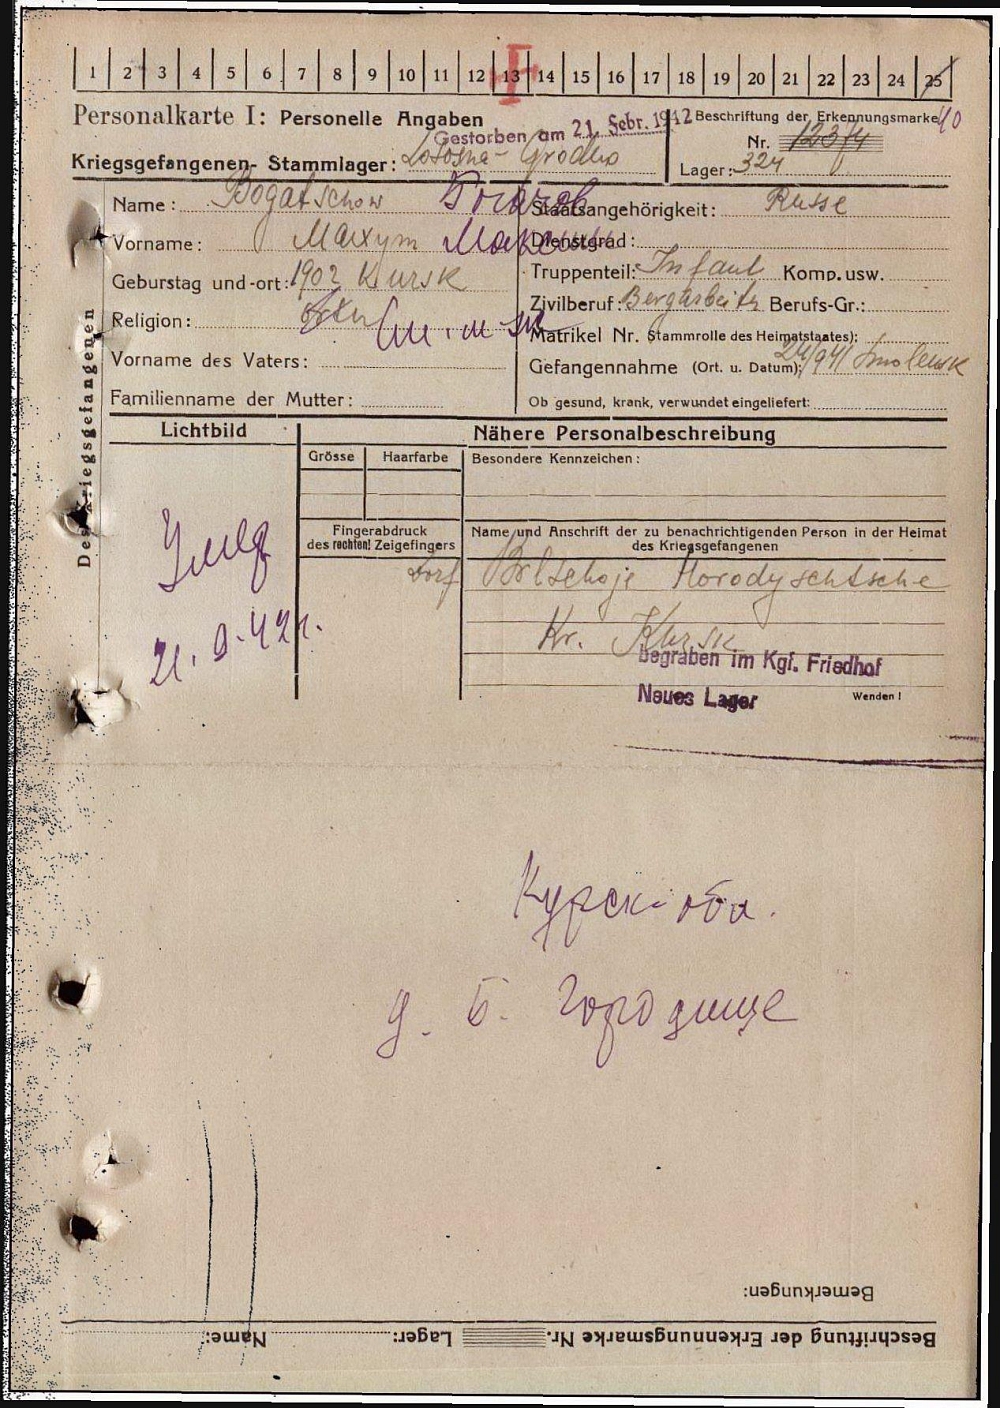 1 2 3 4 5 6 7 8 9 10 11 12 13 14 15 16 17 18 19 20 21 22 23 24 25
Personalkarte I: Personelle Angaben
Gestorben am 21. Febr. 1942
Beschriftung der Erkennungsmarke
Nr. 12374
Kriegsgefangenen- Stammlager: Lososna-Grodno
Lager: 324
Des Kriegsgefangenen
Name: Bogatschow
Staatsangehörigkeit: Russe
Vorname: Maxym
Dienstgrad:
Geburstag und -ort: 1902 Kursk
Truppenteil: Infant Komp. usw.
Religion:
Zivilberuf: Bergarbeiter Berufs-Gr.:
Matrikel Nr. (Stammrolle des Heimatstaates):
Vorname des Vaters:
Gefangennahme (Ort. u. Datum): 24/941 Smolensk
Familienname der Mutter:
Ob gesund, krank, verwundet eingeliefert:
Lichtbild
Nähere Personalbeschreibung
Grösse Haarfarbe Besondere Kennzeichen:
Fingerabdruck
des rechten! Zeigefingers
Name und Anschrift der zu benachrichtigenden Person in der Heimat
des Kriegsgefangenen
Dorf Bolschoje Horodyschtsche
Kr. Kursk
begraben im Kgf. Friedhof
Neues Lager
Wenden!
Умер
21.2.42г.
Курск обл.
д. Б. Городище
Bemerkungen:
Beschriftung der Erkennungsmarke Nr. Lager: Name: